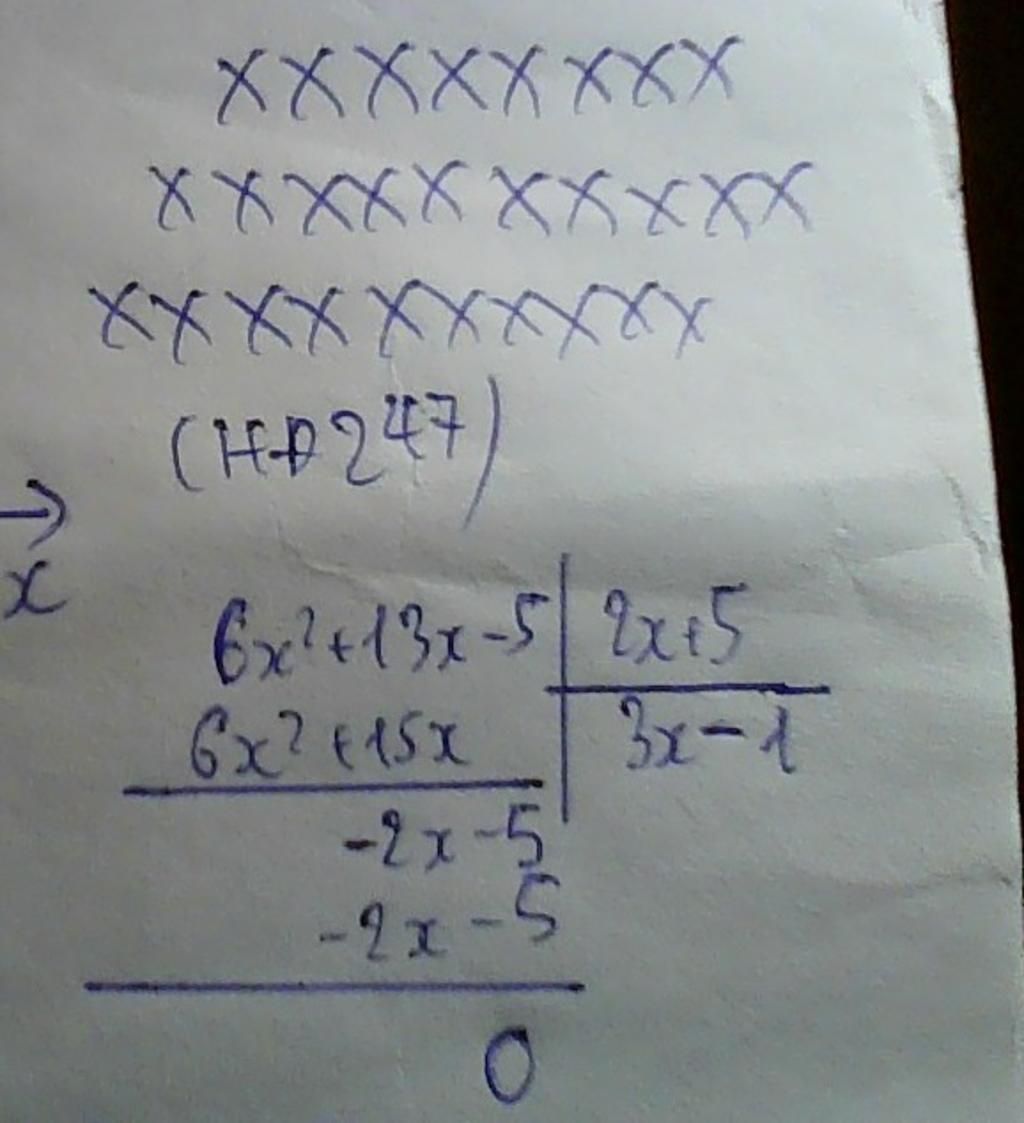 XXXXXXXX
XXXXXXXXXX
XXXXXXXXXX
(HĐ247)
→
x
6x²+13x-5 | 2x+5
6x²+15x | 3x-1
-2x-5
-2x-5
0